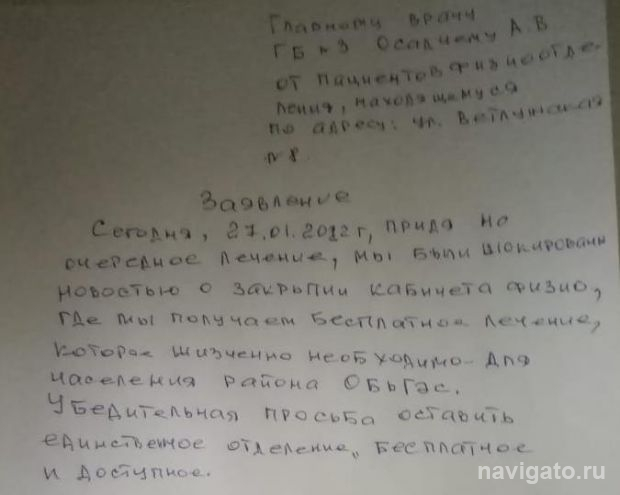 Главному врачу
ГБ №3 Осадчему А.В
от пациентов физиоотде-
ления, находящемуся
по адресу: ул. Ветлужская
№ 8.
Заявление
Сегодня, 27.01.2012 г, придя на
очередное лечение, мы были шокированы
новостью о закрытии кабинета физио,
где мы получаем бесплатное лечение,
которое жизненно необходимо для
населения района ОбьГэс.
Убедительная просьба оставить
единственное отделение, бесплатное
и доступное.
navigato.ru